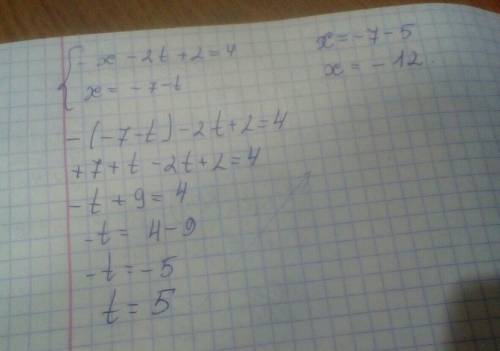 { - x - 2t + 2 = 4
x = -7-t
- (-7-t) - 2t + 2 = 4
+7 + t - 2t + 2 = 4
-t + 9 = 4
-t = 4-9
-t = -5
t = 5
x = -7 - 5
x = - 12.